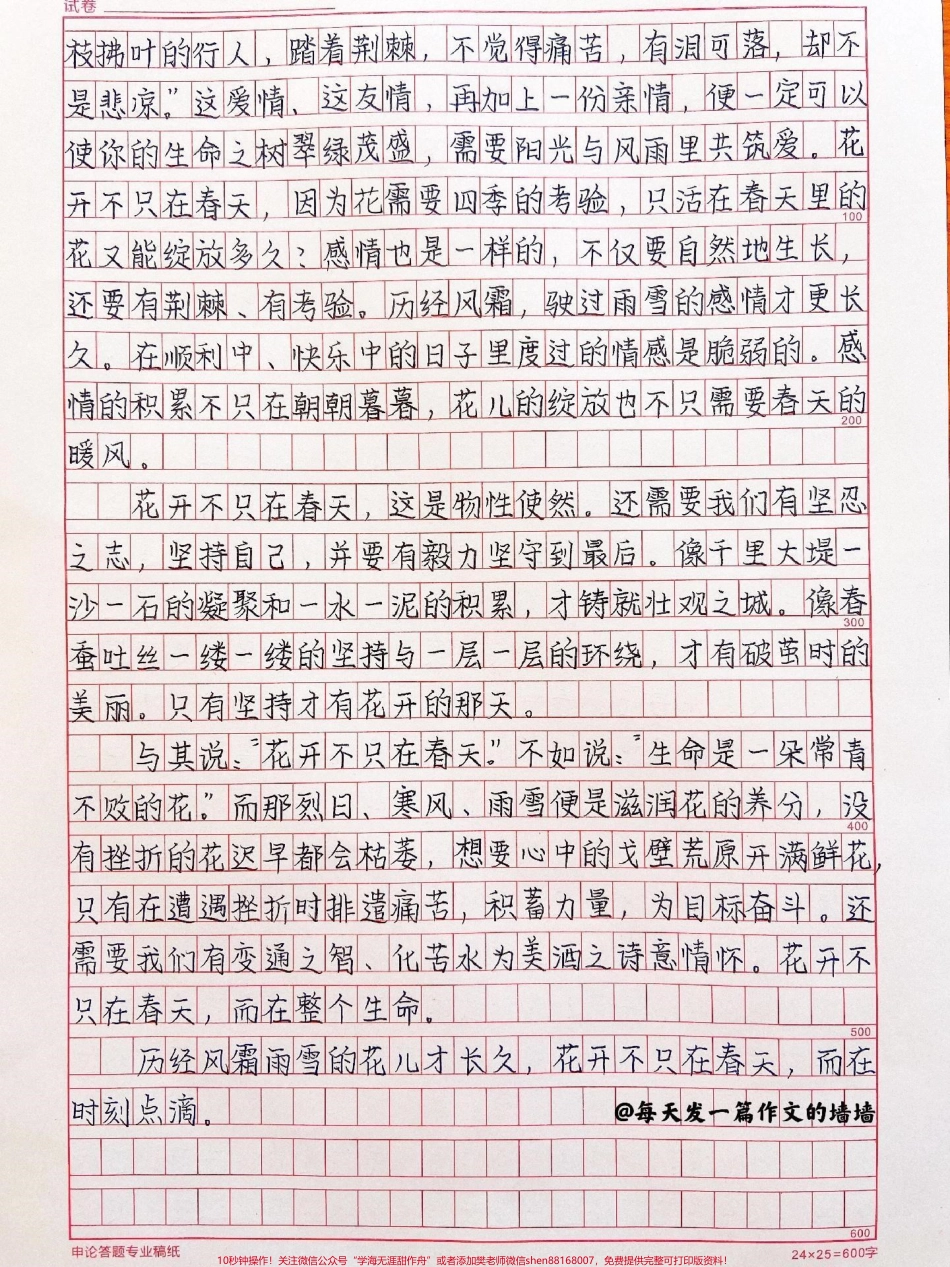 试卷
枝拂叶的行人，踏着荆棘，不觉得痛苦，有泪可落，却不
是悲凉。”这爱情、这友情，再加上一份亲情，便一定可以
使你的生命之树翠绿茂盛，需要阳光与风雨里共筑爱。花
开不只在春天，因为花需要四季的考验，只活在春天里的
100
花又能绽放多久？感情也是一样的，不仅要自然地生长，
还要有荆棘、有考验。历经风霜，驶过雨雪的感情才更长
久。在顺利中、快乐中的日子里度过的情感是脆弱的。感
情的积累不只在朝朝暮暮，花儿的绽放也不只需要春天的
200
暖风。
花开不只在春天，这是物性使然。还需要我们有坚忍
之志，坚持自己，并要有毅力坚守到最后。像千里大堤一
沙一石的凝聚和一水一泥的积累，才铸就壮观之城。像春
300
蚕吐丝一缕一缕的坚持与一层一层的环绕，才有破茧时的
美丽。只有坚持才有花开的那天。
与其说：“花开不只在春天。”不如说：“生命是一朵常青
不败的花。”而那烈日、寒风、雨雪便是滋润花的养分，没
400
有挫折的花迟早都会枯萎，想要心中的戈壁荒原开满鲜花，
只有在遭遇挫折时排遣痛苦，积蓄力量，为目标奋斗。还
需要我们有变通之智、化苦水为美酒之诗意情怀。花开不
只在春天，而在整个生命。
500
历经风霜雨雪的花儿才长久，花开不只在春天，而在
时刻点滴。
@每天发一篇作文的墙墙
600
申论答题专业稿纸
24×25=600字
10秒钟操作！关注微信公众号“学海无涯甜作舟”或者添加樊老师微信shen88168007，免费提供完整可打印版资料！